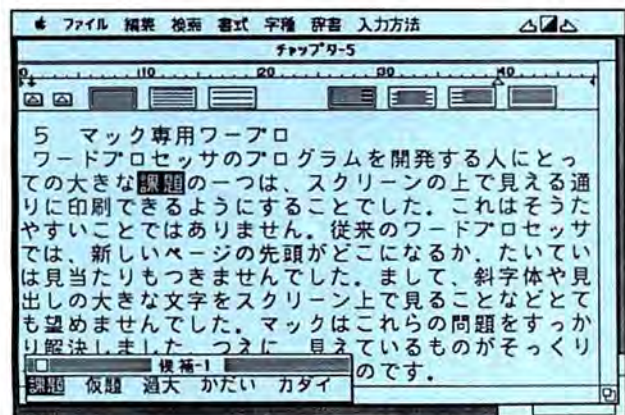 ファイル 編集 検索 書式 字種 辞書 入力方法
チャップター5
0 10 20 30 40
5 マック専用ワープロ
ワードプロセッサのプログラムを開発する人にとっ
ての大きな課題の一つは、スクリーンの上で見える通
りに印刷できるようにすることでした。これはそうた
やすいことではありません。従来のワードプロセッサ
では、新しいページの先頭がどこになるか、たいてい
は見当たりもつきませんでした。まして、斜字体や見
出しの大きな文字をスクリーン上で見ることなどとて
も望めませんでした。マックはこれらの問題をすっか
り解決しました 見えているものがそっくり
のです。
候補-1
課題 仮題 過大 かだい カダイ